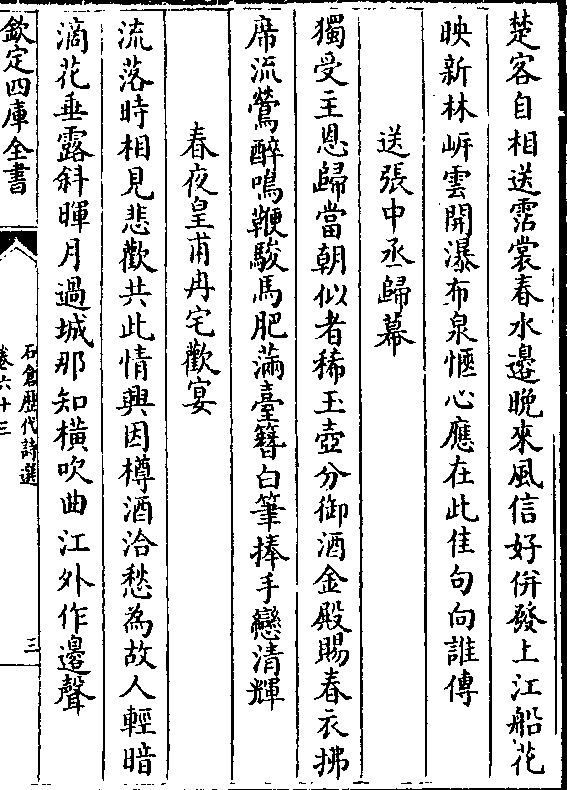 楚客自相送霑裳春水邊晚來風信好併發上江船花
映新林岸雲開瀑布泉愜心應在此佳句向誰傳
送張中丞歸幕
獨受主恩歸當朝似者稀玉壺分御酒金殿賜春衣拂
席流鶯醉鳴鞭駿馬肥滿臺簪白筆捧手戀清輝
春夜皇甫冉宅歡宴
流落時相見悲歡共此情興因樽酒洽愁為故人輕暗
滴花垂露斜暉月過城那知橫吹曲江外作邊聲
欽定四庫全書
石倉歷代詩選
卷六十三
三